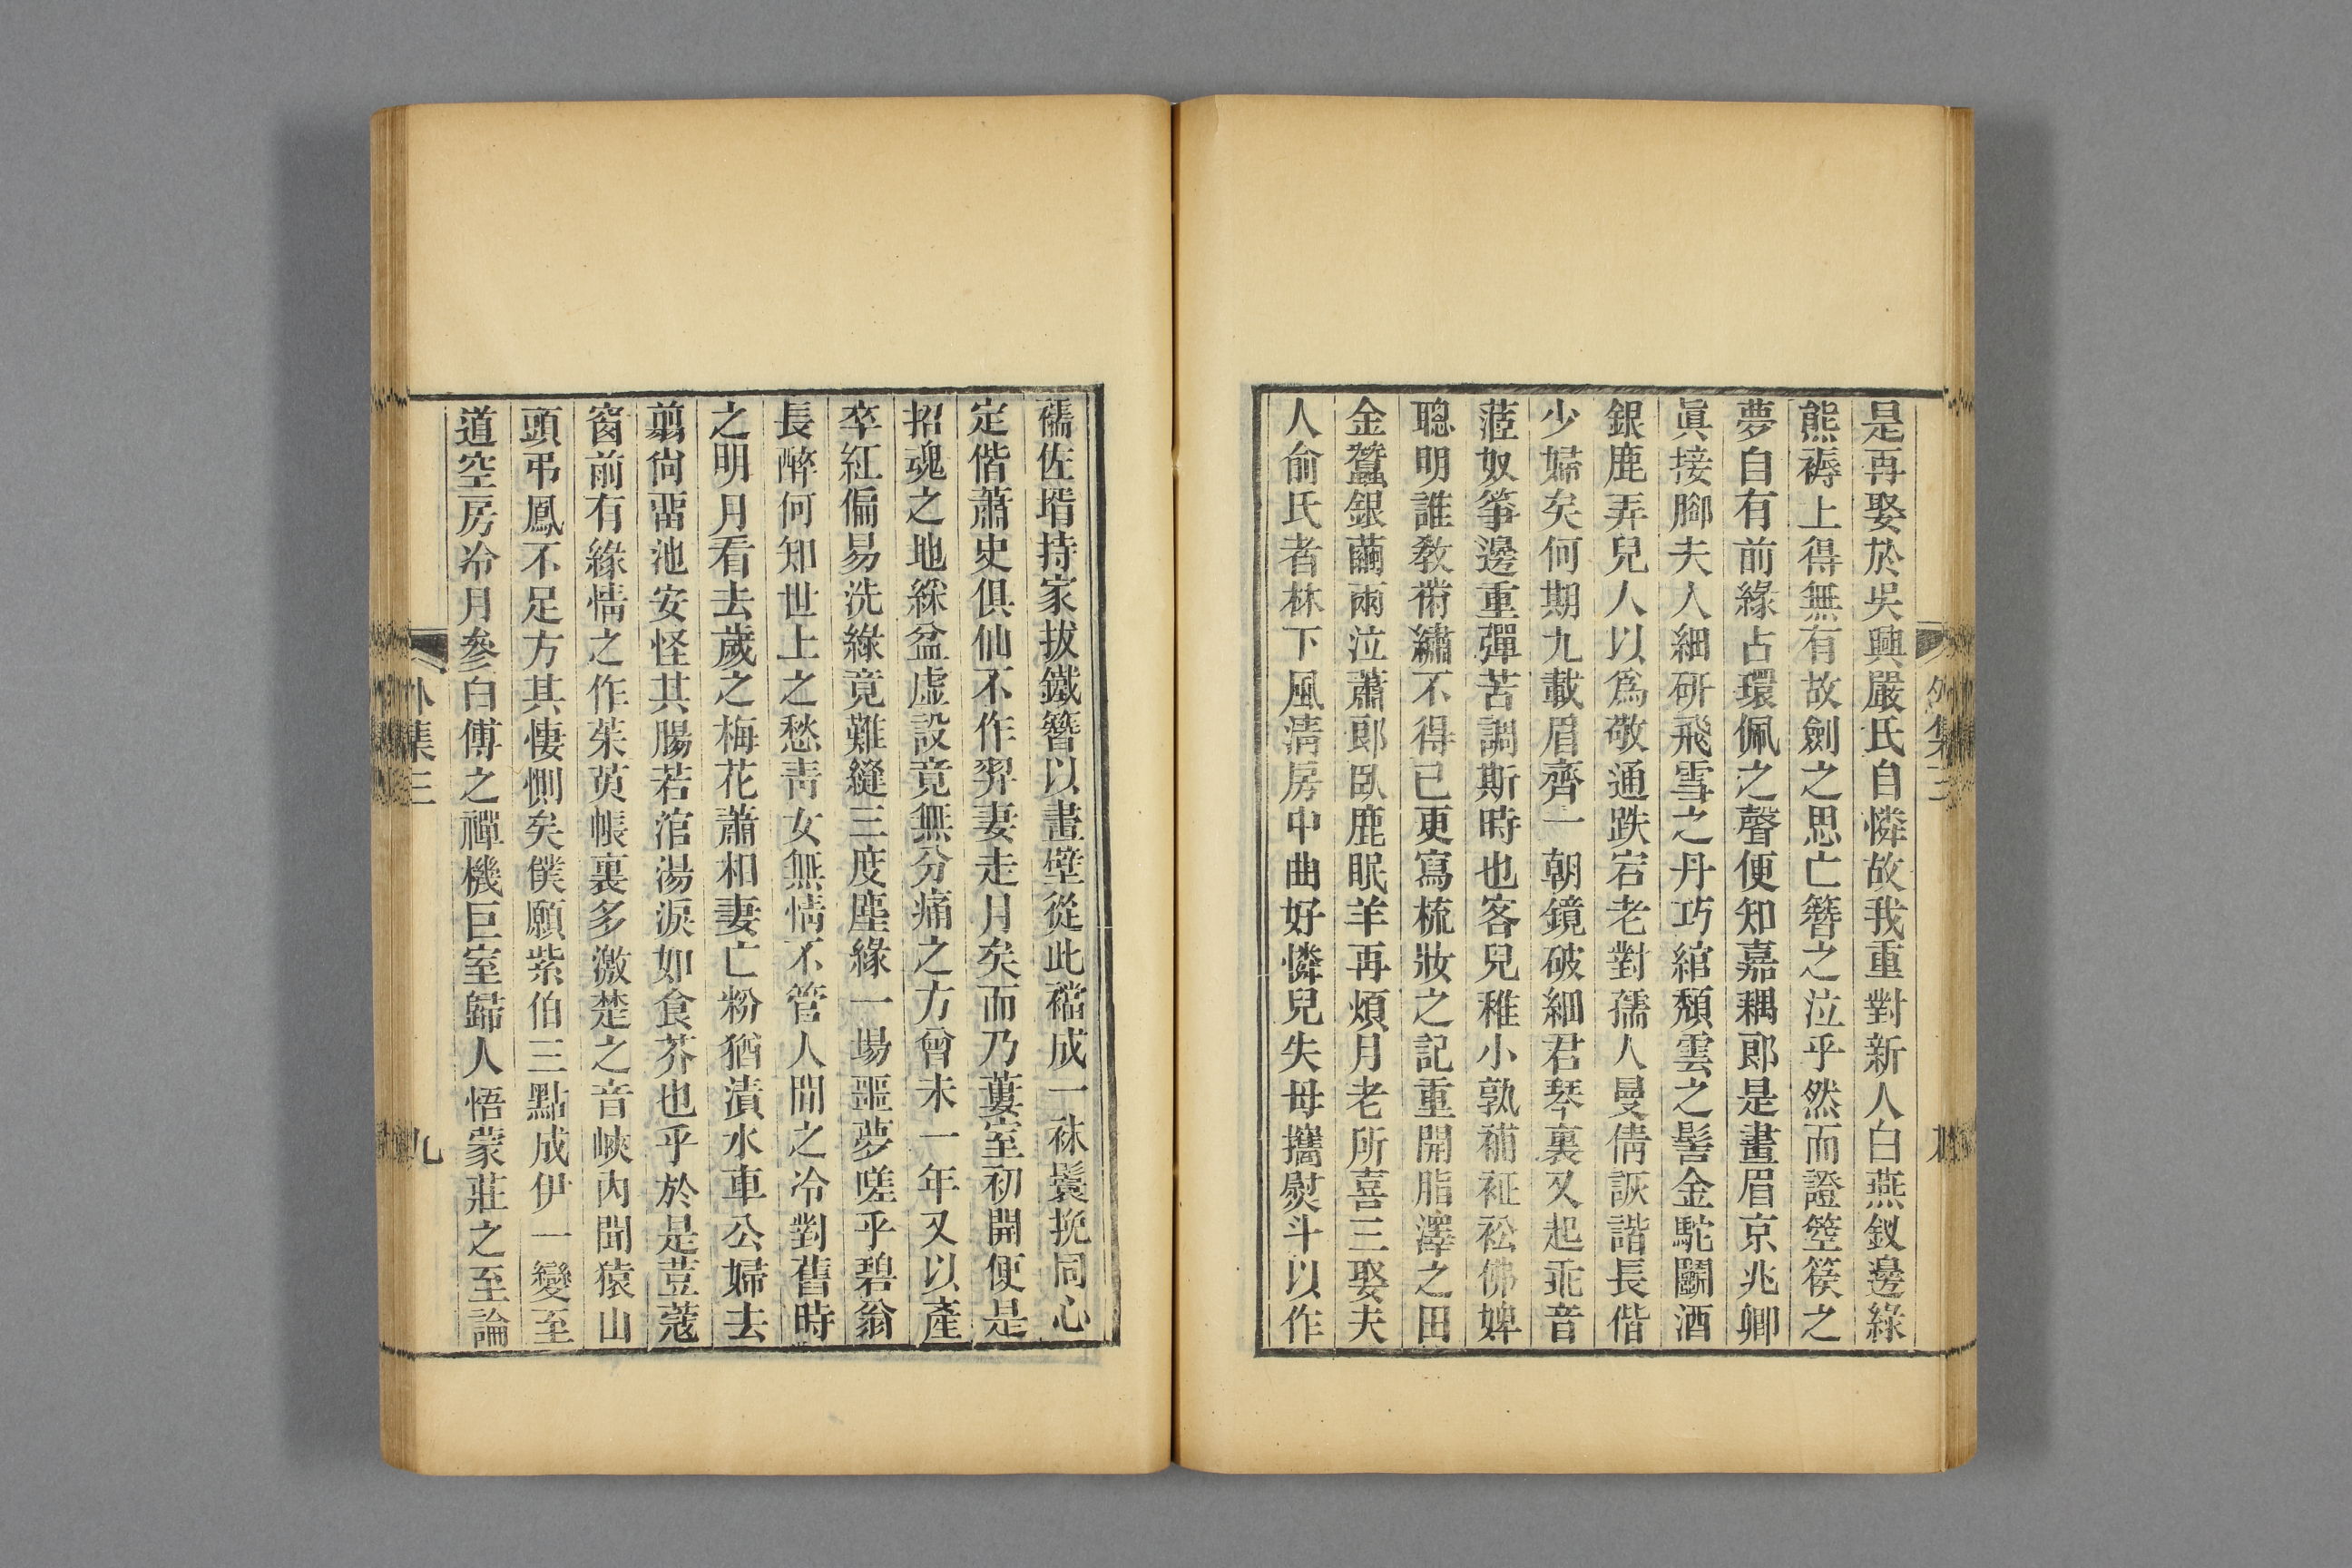 是再娶於吳興嚴氏自憐故我重對新人白燕釵邊綠
熊褥上得無有故劍之思亡簪之泣乎然而證箜篌之
夢自有前緣占環佩之聲便知嘉耦郎是畫眉京兆卿
眞接腳夫人細硏飛雪之丹巧綰頹雲之髻金駝鬭酒
銀鹿弄兒人以爲敬通跌宕老對孺人曼倩詼諧長偕
少婦矣何期九載眉齊一朝鏡破細君琴裏又起乖音
蒞奴筝邊重彈苦調斯時也客兒稚小孰補袵衳佛婢
聰明誰敎襟繡不得已更寫梳妝之記重開脂澤之田
金蠶銀繭兩泣蕭郎臥鹿眠羊再煩月老所喜三娶夫
人俞氏者林下風淸房中曲好憐兒失母攜熨斗以作
襦佐壻持家拔鐵簪以畫壁從此襠成一袜鬟挽同心
定偕蕭史俱仙不作羿妻走月矣而乃蔞室初開便是
招魂之地綵盆虛設竟無分痛之方曾未一年又以產
卒紅偏易洗綠竟難縫三度塵緣一場噩夢嗟乎碧翁
長醉何知世上之愁靑女無情不管人間之冷對舊時
之明月看去歲之梅花蕭相妻亡粉猶漬水車公婦去
翦尙畱池安怪其腸若涫湯淚如食芥也乎於是荳蔻
窗前有緣情之作茱萸帳裏多激楚之音峽內聞猿山
頭弔鳳不足方其悽惻矣僕願紫伯三點成伊一變至
道空房冷月參白傅之禪機巨室歸人悟蒙莊之至論
外集三
九